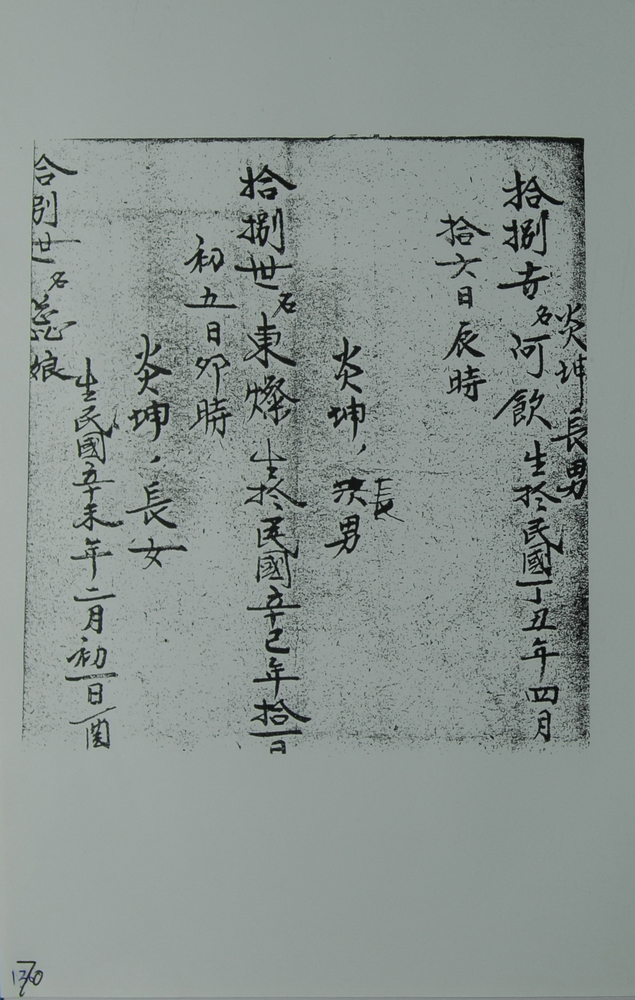 炎坤長男
拾捌世名河飲生於民國丁丑年四月
拾六日辰時
炎坤，次男
長
拾捌世名東燦生於民國辛巳年拾一日
初五日卯時
炎坤，長女
生民國辛未年二月初一日酉
拾捌世名蕊娘
1360